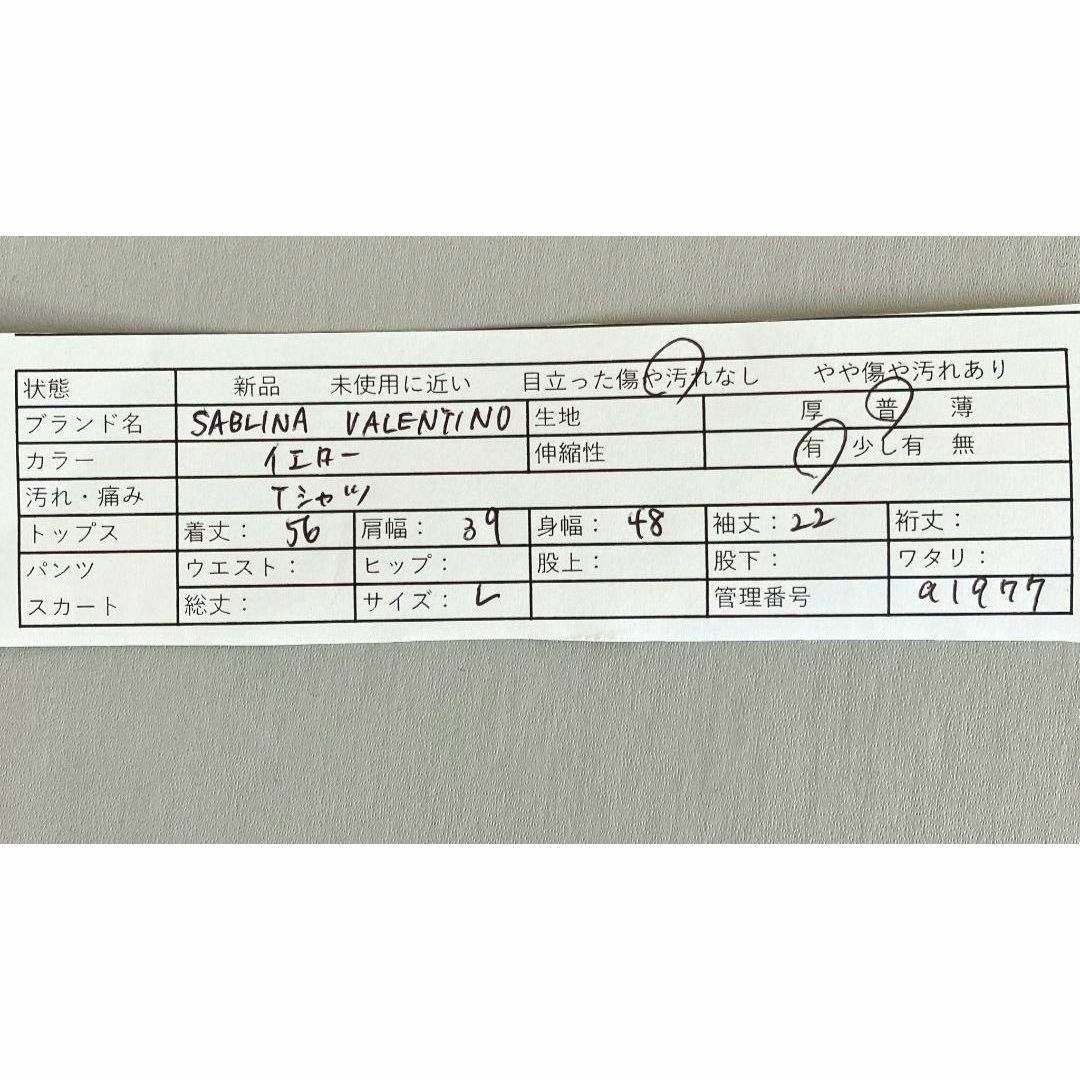 状態 新品 未使用に近い 目立った傷や汚れなし やや傷や汚れあり
ブランド名 SABLINA VALENTINO 生地 厚 普 薄
カラー イエロー 伸縮性 有 少し有 無
汚れ・痛み Tシャツ
トップス 着丈: 56 肩幅: 39 身幅: 48 袖丈: 22 裄丈:
パンツ ウエスト: ヒップ: 股上: 股下: ワタリ:
スカート 総丈: サイズ: L 管理番号 a1977